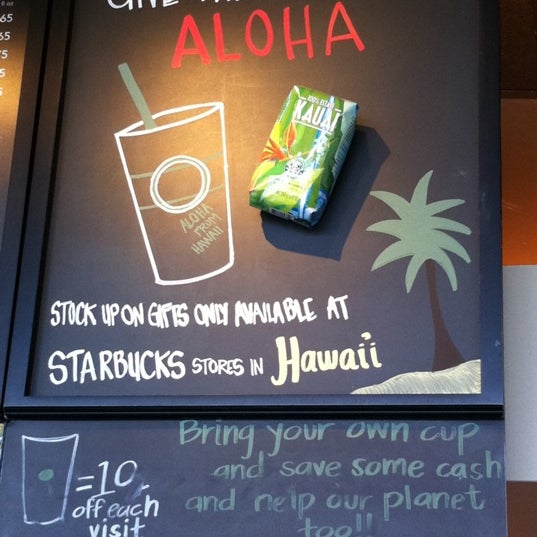 GIVE
ALOHA
KAUAI
ALOHA
FROM
HAWAII
STOCK UP ON GIFTS ONLY AVAILABLE AT
STARBUCKS STORES IN Hawai'i
Bring your own cup
and save some cash
and help our planet
too!!
=10
off each
visit
65
65
75
5